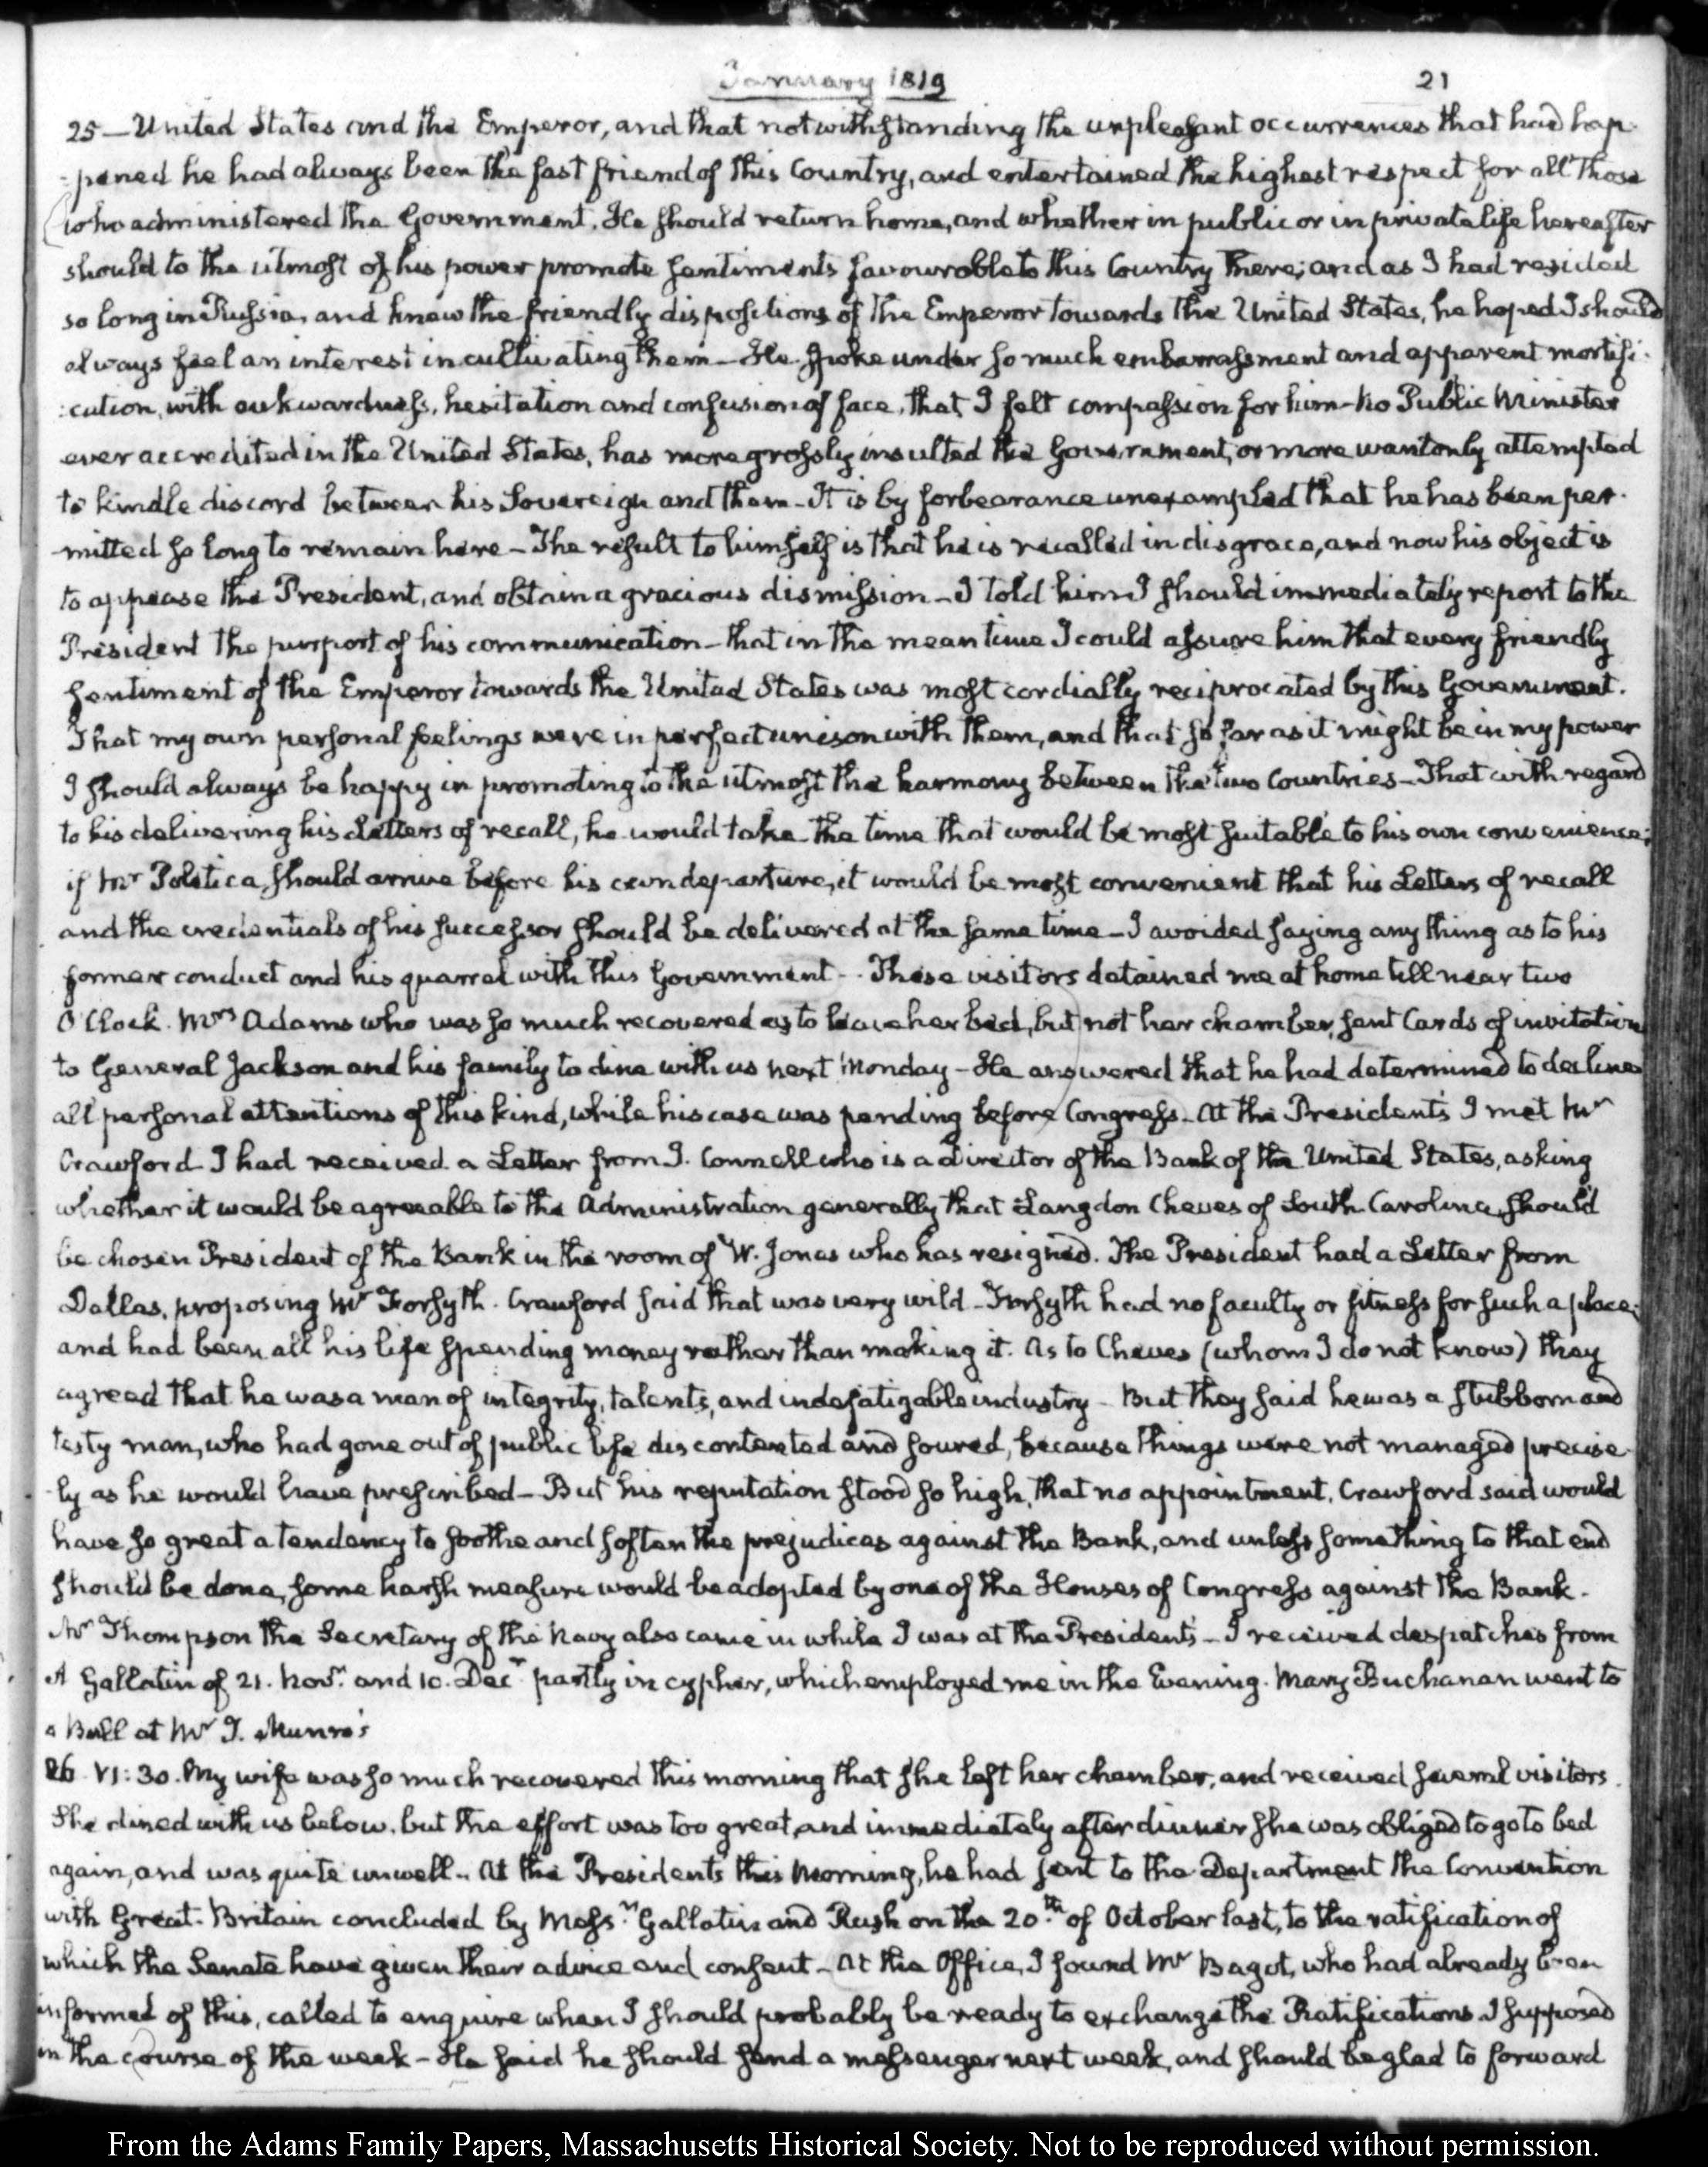 January 1819
21
25 — United States and the Emperor, and that notwithstanding the unpleasant occurrences that had hap-
-pened he had always been the fast friend of this Country, and entertained the highest respect for all those
who administered the Government. He should return home, and whether in public or in private life hereafter
should to the utmost of his power promote sentiments favourable to this Country there; and as I had resided
so long in Russia, and knew the friendly dispositions of the Emperor towards the United States, he hoped I should
always feel an interest in cultivating them — He spoke under so much embarrassment and apparent mortifi-
:cation, with awkwardness, hesitation and confusion of face, that I felt compassion for him — No Public Minister
ever accredited in the United States, has more grossly insulted the Government, or more wantonly attempted
to kindle discord between his Sovereign and them — It is by forbearance unexampled that he has been per-
-mitted so long to remain here — The result to himself is that he is recalled in disgrace, and now his object is
to appease the President, and obtain a gracious dismission — I told him I should immediately report to the
President the purport of his communication — that in the mean time I could assure him that every friendly
sentiment of the Emperor towards the United States was most cordially reciprocated by this Government.
That my own personal feelings were in perfect unison with them, and that so far as it might be in my power
I should always be happy in promoting to the utmost the harmony between the two Countries — That with regard
to his delivering his Letters of recall, he would take the time that would be most suitable to his own convenience;
if Mr Politica, should arrive before his own departure, it would be most convenient that his Letters of recall
and the credentials of his successor should be delivered at the same time — I avoided saying any thing as to his
former conduct and his quarrel with this Government — These visitors detained me at home till near two
O'Clock. Mrs Adams who was so much recovered as to leave her bed, but not her chamber, sent Cards of invitation
to General Jackson and his family to dine with us next Monday — He answered that he had determined to decline
all personal attentions of this kind, while his case was pending before Congress — At the President's I met Mr
Crawford I had received a Letter from J. Connell who is a director of the Bank of the United States, asking
whether it would be agreeable to the Administration generally that Langdon Cheves of South Carolina, should
be chosen President of the Bank in the room of W. Jones who has resigned. The President had a Letter from
Dallas, proposing Mr Forsyth. Crawford said that was very wild — Forsyth had no faculty or fitness for such a place;
and had been all his life spending money rather than making it. As to Cheves (whom I do not know) they
agreed that he was a man of integrity, talents, and indefatigable industry — But they said he was a stubborn and
testy man, who had gone out of public life discontented and soured, because things were not managed precise-
-ly as he would have prescribed — But his reputation stood so high, that no appointment, Crawford said would
have so great a tendency to soothe and soften the prejudices against the Bank, and unless something to that end
should be done, some harsh measure would be adopted by one of the Houses of Congress against the Bank.
Mr Thompson the Secretary of the Navy also came in while I was at the President's — I received despatches from
A Gallatin of 21. Novr. and 10. Decr partly in cypher, which employed me in the Evening. Mary Buchanan went to
a Ball at Mr T. Munro's
26. VI:30. My wife was so much recovered this morning that she left her chamber, and received several visitors.
She dined with us below. but the effort was too great, and immediately after dinner she was obliged to go to bed
again, and was quite unwell — At the President's this Morning, he had sent to the Department the Convention
with Great-Britain concluded by Messrs Gallatin and Rush on the 20th of October last, to the ratification of
which the Senate have given their advice and consent — At the Office, I found Mr Bagot, who had already been
informed of this, called to enquire when I should probably be ready to exchange the Ratifications. I supposed
in the course of the week — He said he should send a messenger next week, and should be glad to forward
From the Adams Family Papers, Massachusetts Historical Society. Not to be reproduced without permission.